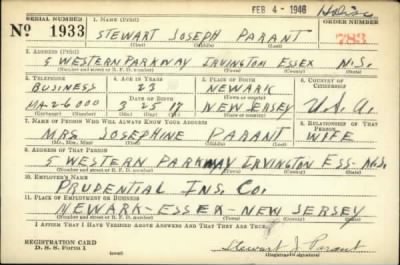 FEB 4 - 1946
SERIAL NUMBER 1. NAME (Print) ORDER NUMBER
No 1933 STEWART JOSEPH PARANT 783
(First) (Middle) (Last)
2. ADDRESS (Print)
5 WESTERN PARKWAY IRVINGTON ESSEX N.J.
(Number and street or R. F. D. number) (Town) (County) (State)
3. TELEPHONE 4. AGE IN YEARS 5. PLACE OF BIRTH 6. COUNTRY OF CITIZENSHIP
BUSINESS 23 NEWARK
(Town or county)
DATE OF BIRTH
MA-2-6000 3 25 17 NEW JERSEY U.S.A.
(Mo.) (Day) (Yr.) (State or country)
7. NAME OF PERSON WHO WILL ALWAYS KNOW YOUR ADDRESS 8. RELATIONSHIP OF THAT PERSON
MRS JOSEPHINE PARANT WIFE
(Mr., Mrs., Miss) (First) (Middle) (Last)
9. ADDRESS OF THAT PERSON
5 WESTERN PARKWAY IRVINGTON ESS- N.J.
(Number and street or R. F. D. number) (Town) (County) (State)
10. EMPLOYER'S NAME
PRUDENTIAL INS. CO.
11. PLACE OF EMPLOYMENT OR BUSINESS
NEWARK-ESSEX-NEW JERSEY
(Number and street or R. F. D. number) (Town) (County) (State)
I AFFIRM THAT I HAVE VERIFIED ABOVE ANSWERS AND THAT THEY ARE TRUE.
REGISTRATION CARD
D. S. S. Form 1
Stewart J. Parant
(Registrant's signature)